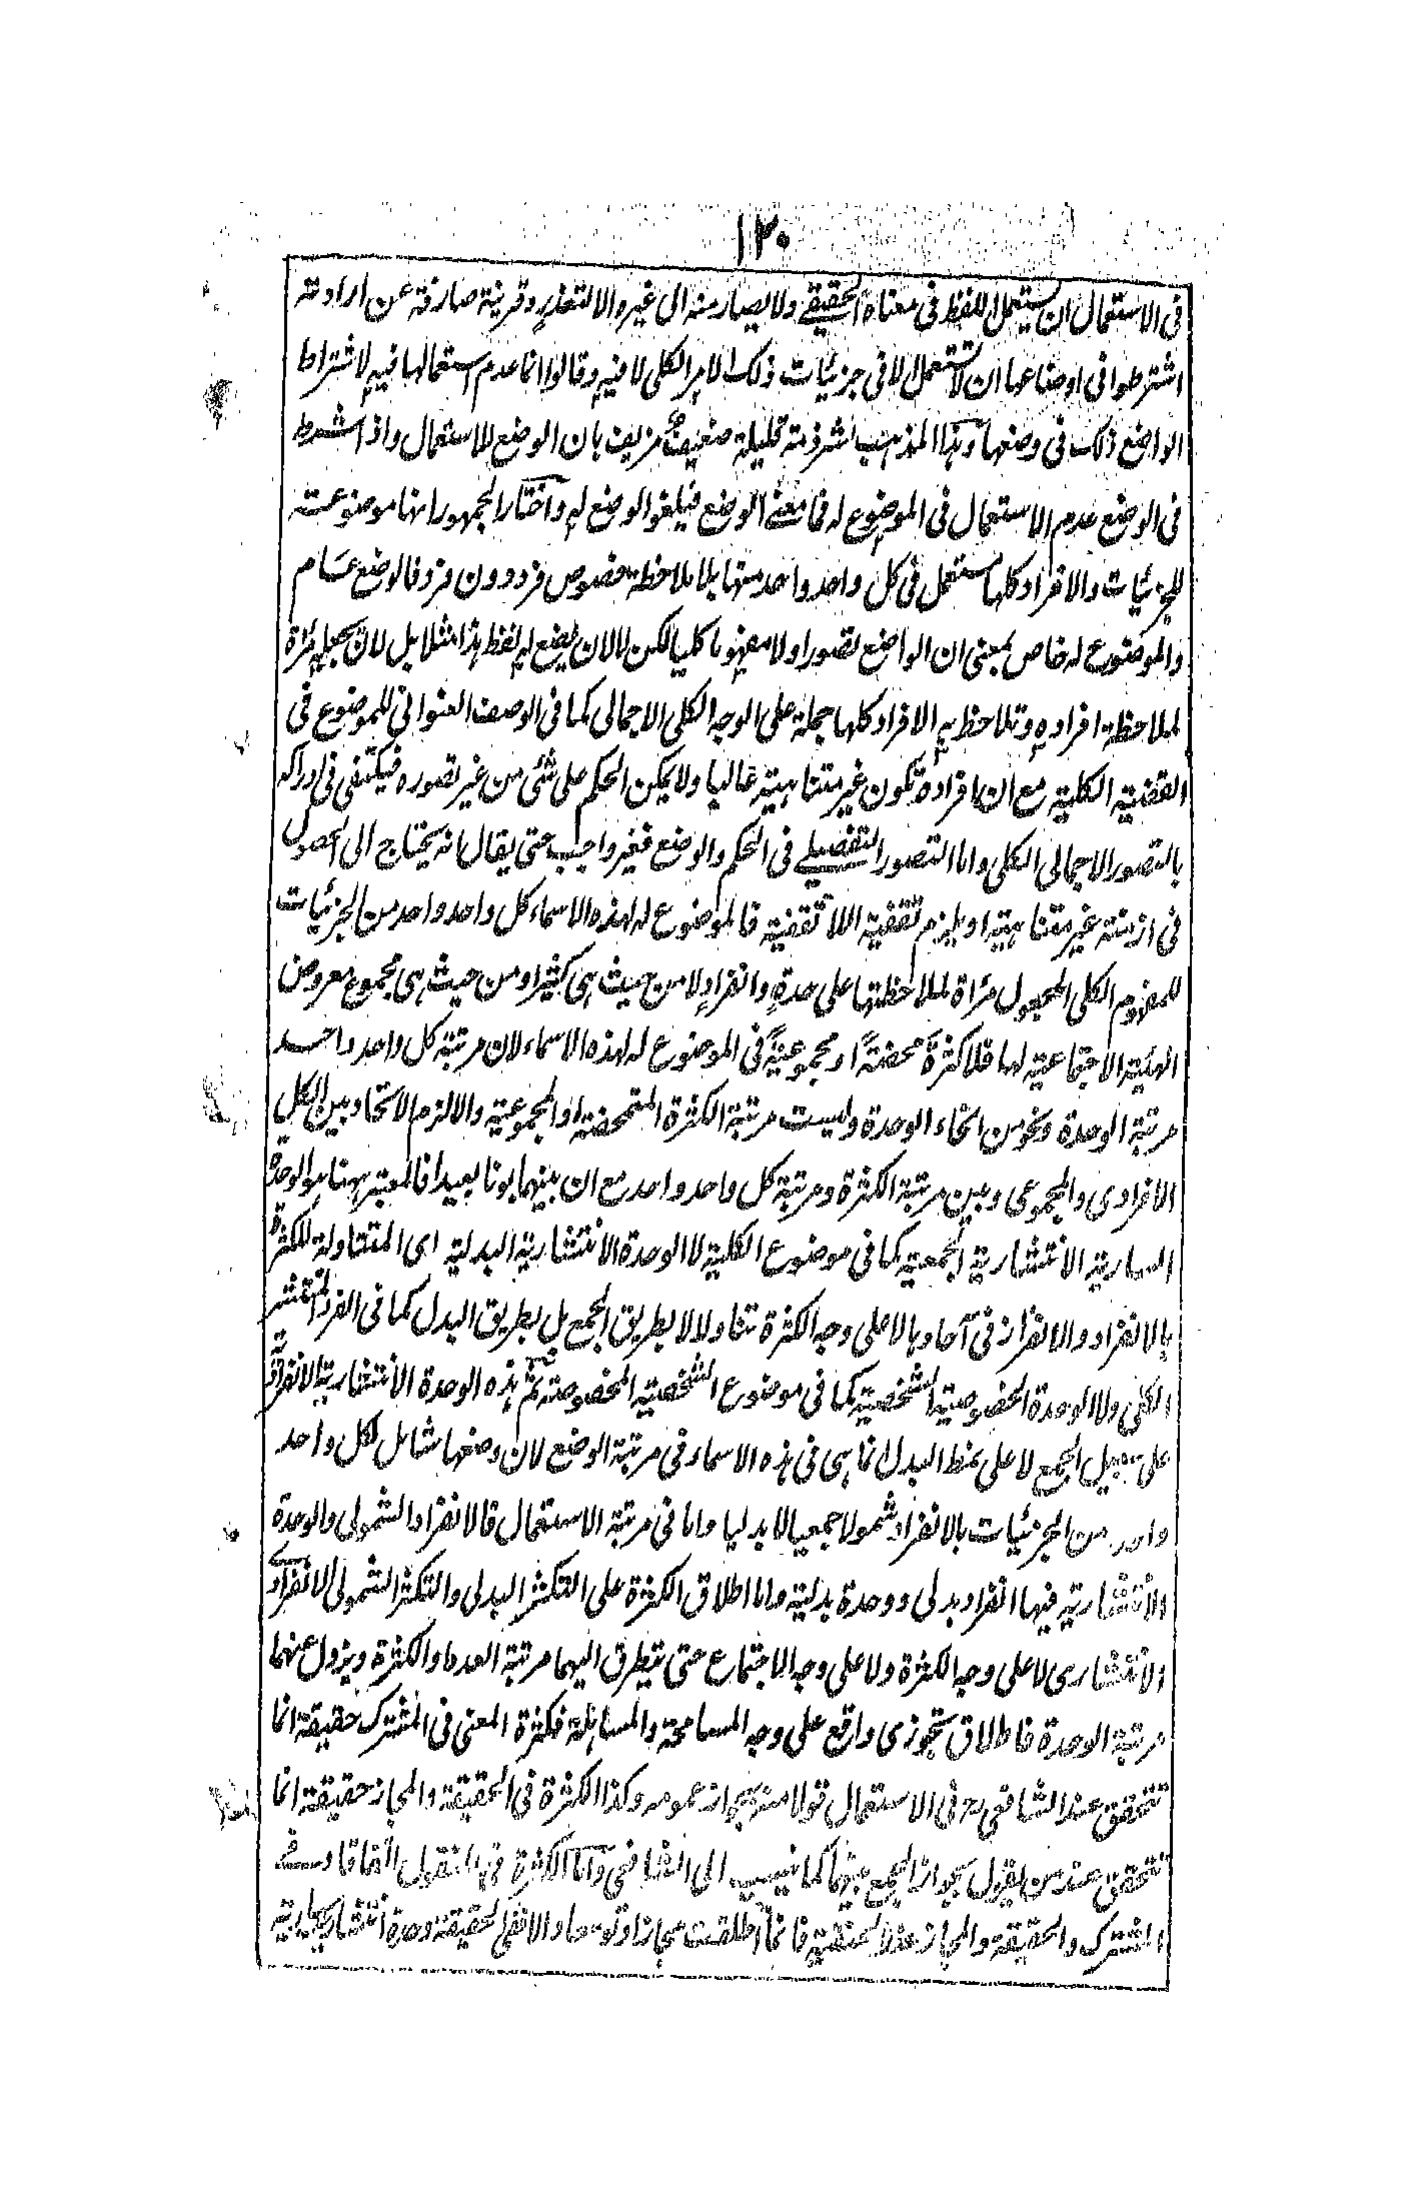 ١٣٠
فى الاستعمال ان يستعمل اللفظ فى معناه الحقيقے ولا يصار منه الى غيره الا لتعذر وقرينة صارفة عن ارادته
اشترطوا فى اوضاعها ان لا تستعمل الا فى جزئيات ذلك الامر الكلى لا فيه وقالوا انما عدم استعمالها فيه لاشتراط
الواضع ذلك فى وضعها وهذا المذهب لشرذمة قليلة ضعيف مزيف بان الوضع للاستعمال واذا شرط
فى الوضع عدم الاستعمال فى الموضوع له فما معنے الوضع فيلغو الوضع له واختار الجمهور انها موضوعة
للجزئيات والافراد كلها مستعمل فى كل واحد واحد منها بلا ملاحظة خصوص فرد دون فرد فالوضع عام
والموضوع له خاص بمعنى ان الواضع تصور اولا مفهوما كليا لكن لا لان يضع له لفظ هذا مثلا بل لان يجعله مرٰاة
لملاحظة افراده وتلاحظ به الافراد كلها جملة على الوجه الكلى الاجمالى كما فى الوصف العنوانى للموضوع فى
القضية الكلية مع ان افراده تكون غير متناهية غالبا ولا يمكن الحكم على شئ من غير تصوره فيكتفى فى ادراكه
بالتصور الاجمالى الكلى واما التصور التفصيلے فى الحكم والوضع فغير واجب حتى يقال انه يحتاج الى الحصول
فى ازمنة غير متناهية او يلزم تقفية اللا تقفية فالموضوع له لهذه الاسماء كل واحد واحد من الجزئيات
للمفهوم الكلى المجعول مرٰاة لملاحظتها على حدةٍ وانفرادٍ لا من حيث هى كثيرا ومن حيث هى مجموع معروض
الهيئة الاجتماعية لها فلا كثرةً محضةً او مجموعيةً فى الموضوع له لهذه الاسماء لان مرتبة كل واحد واحد
مرتبة الوحدة ونحو من انحاء الوحدة وليست مرتبة الكثرة المتمحضة او المجموعية والا لزم الاتحاد بين الكل
الافرادى والمجموعى وبين مرتبة الكثرة ومرتبة كل واحد واحد مع ان بينهما بونا بعيدا فالمعتبر ههنا هو الوحدة
السارية الانتشارية الجمعية كما فى موضوع الكلية لا الوحدة الانتشارية البدلية اى المتناولة للكثرة
بالانفراد والانفراز فى آحادها لا على وجه الكثرة تناولا لا بطريق الجمع بل بطريق البدل كما فى الفرد المنتشر
الكلى ولا الوحدة الخصوصية الشخصية كما فى موضوع الشخصية المخصوصة ثم هذه الوحدة الانتشارية الانفرادية
على سبيل الجمع لا على نمط البدل انما هى فى هذه الاسماء فى مرتبة الوضع لان وضعها شامل لكل واحد
واحد من الجزئيات بالانفراد شمولا جمعيا لا بدليا واما فى مرتبة الاستعمال فالانفراد الشمولى والوحدة
الانتشارية فيها انفراد بدلى ووحدة بدلية واما اطلاق الكثرة على التكثر البدلى والتكثر الشمولى الانفرادے
الانتشارى لا على وجه الكثرة ولا على وجه الاجتماع حتى يتطرق اليهما مرتبة العدد والكثرة ويزول عنهما
مرتبة الوحدة فاطلاق تجوزى واقع على وجه المسامحة والمساهلة فكثرة المعنى فى المشترك حقيقة انما
تتحقق عند الشافعى رح فى الاستعمال قولا منه بجواز عمومه وكذا الكثرة فى الحقيقة والمجاز حقيقة انما
تتحقق عند من يقول بجواز الجمع بينهما كما نسب الى الشافعى واما الكثرة فى المنقول اتفاقا وفے
المشترك والحقيقة والمجاز عند الحنفية فانما اطلقت مجازا وتوسعا والا ففى الحقيقة وحدة انتشارية